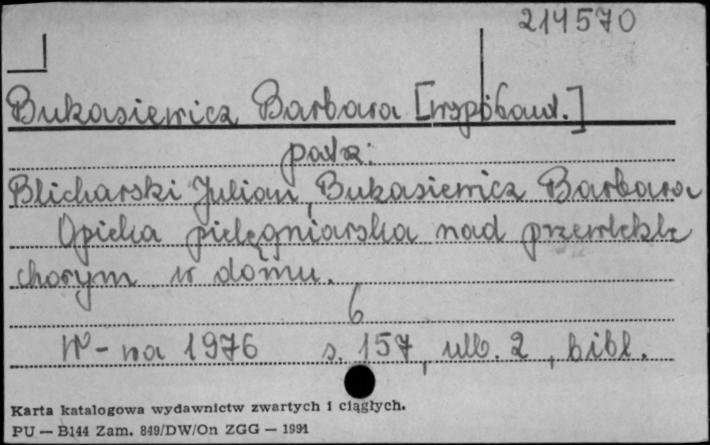 214570
Bukasiewicz Barbara [współaut.]
patrz:
Blicharski Julian, Bukasiewicz Barbara
Opieka pielęgniarska nad przewlekle
chorym w domu.
6
W-wa 1976 s. 157, ulb. 2, bibl.
Karta katalogowa wydawnictw zwartych i ciągłych.
PU — B144 Zam. 849/DW/On ZGG — 1991